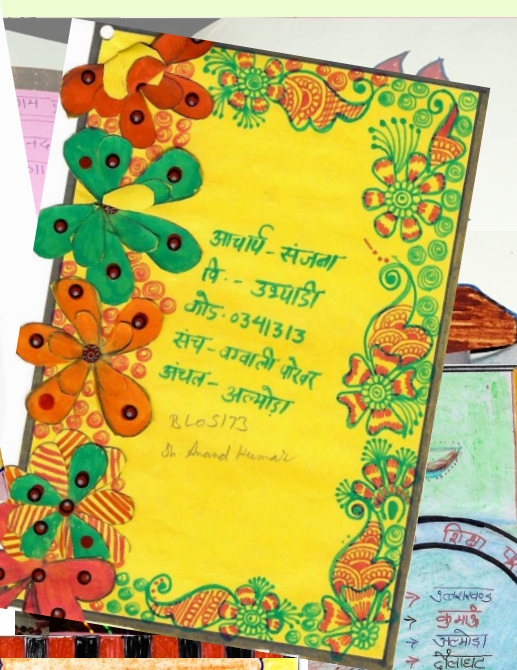 आचार्य - संजना
वि. - उभ्याडी
कोड. 0341313
संच - बग्वाली पोखर
अंचल - अल्मोड़ा
BLOS173
Sh. Anand Kumar
शिक्षा
उत्तराखण्ड
कुमाऊँ
अल्मोड़ा
दौलाघट